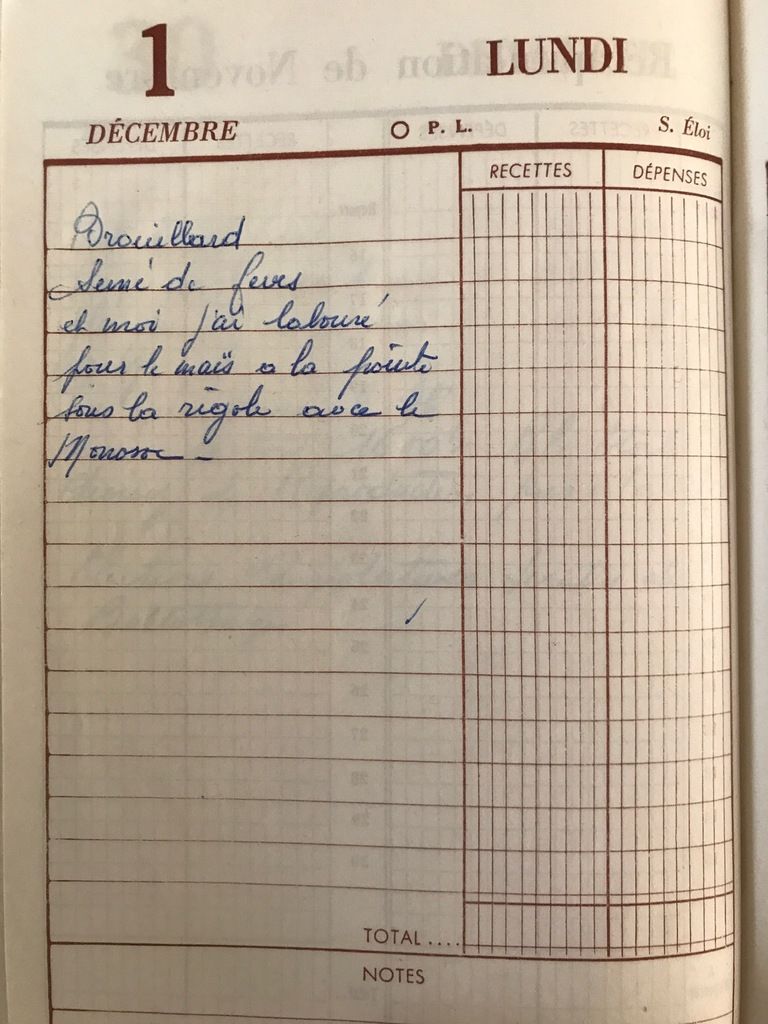 1
LUNDI
DÉCEMBRE
O P. L.
S. Éloi
RECETTES
DÉPENSES
Brouillard
Semé de feves
et moi j'ai labouré
pour le maïs a la pointe
sous la rigole avec le
Monosoc -
TOTAL ....
NOTES